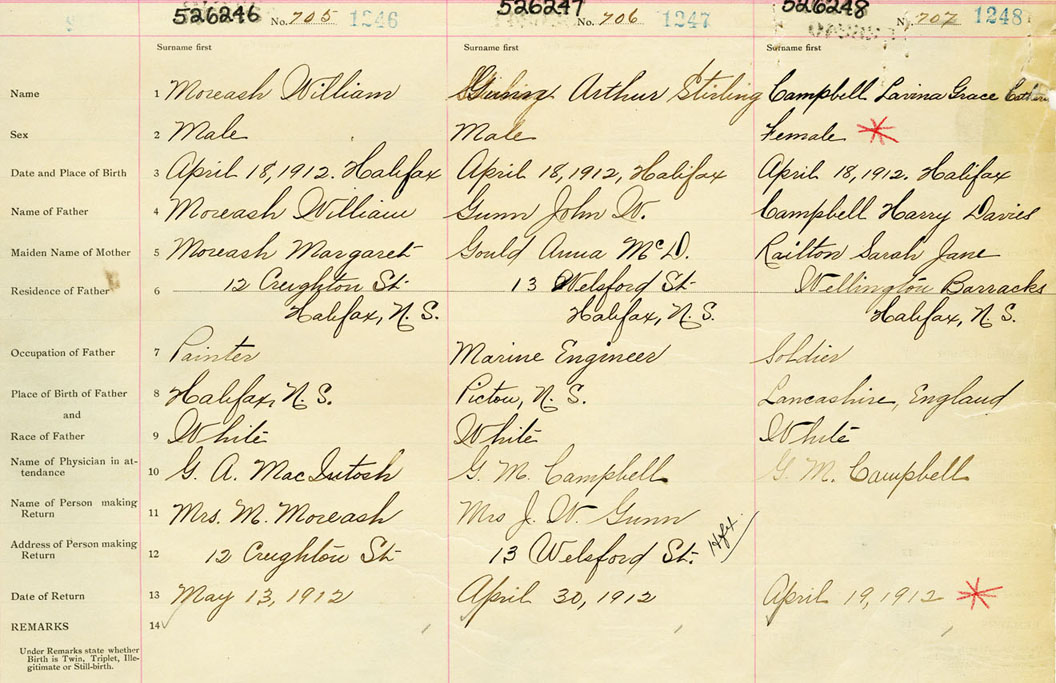 526246 No. 705 1246 526247 No. 706 1247 526248 No. 707 1248
Surname first Surname first Surname first
Name 1 Moreash William Arthur Stirling Campbell Lavina Grace
Sex 2 Male Male Female
Date and Place of Birth 3 April 18, 1912. Halifax April 18, 1912, Halifax April 18, 1912. Halifax
Name of Father 4 Moreash William Gunn John W. Campbell Harry Davies
Maiden Name of Mother 5 Moreash Margaret Gould Anna McD. Railton Sarah Jane
Residence of Father 6 12 Creighton St. 13 Welsford St. Wellington Barracks
Halifax, N.S. Halifax, N.S. Halifax, N.S.
Occupation of Father 7 Painter Marine Engineer Soldier
Place of Birth of Father 8 Halifax, N.S. Pictou, N.S. Lancashire, England
and
Race of Father 9 White White White
Name of Physician in at-
tendance 10 G. A. MacIntosh G. M. Campbell G. M. Campbell
Name of Person making
Return 11 Mrs. M. Moreash Mrs J. W. Gunn
Address of Person making
Return 12 12 Creighton St. 13 Welsford St. Hfx.
Date of Return 13 May 13, 1912 April 30, 1912 April 19, 1912
REMARKS 14
Under Remarks state whether
Birth is Twin, Triplet, Ille-
gitimate or Still-birth.